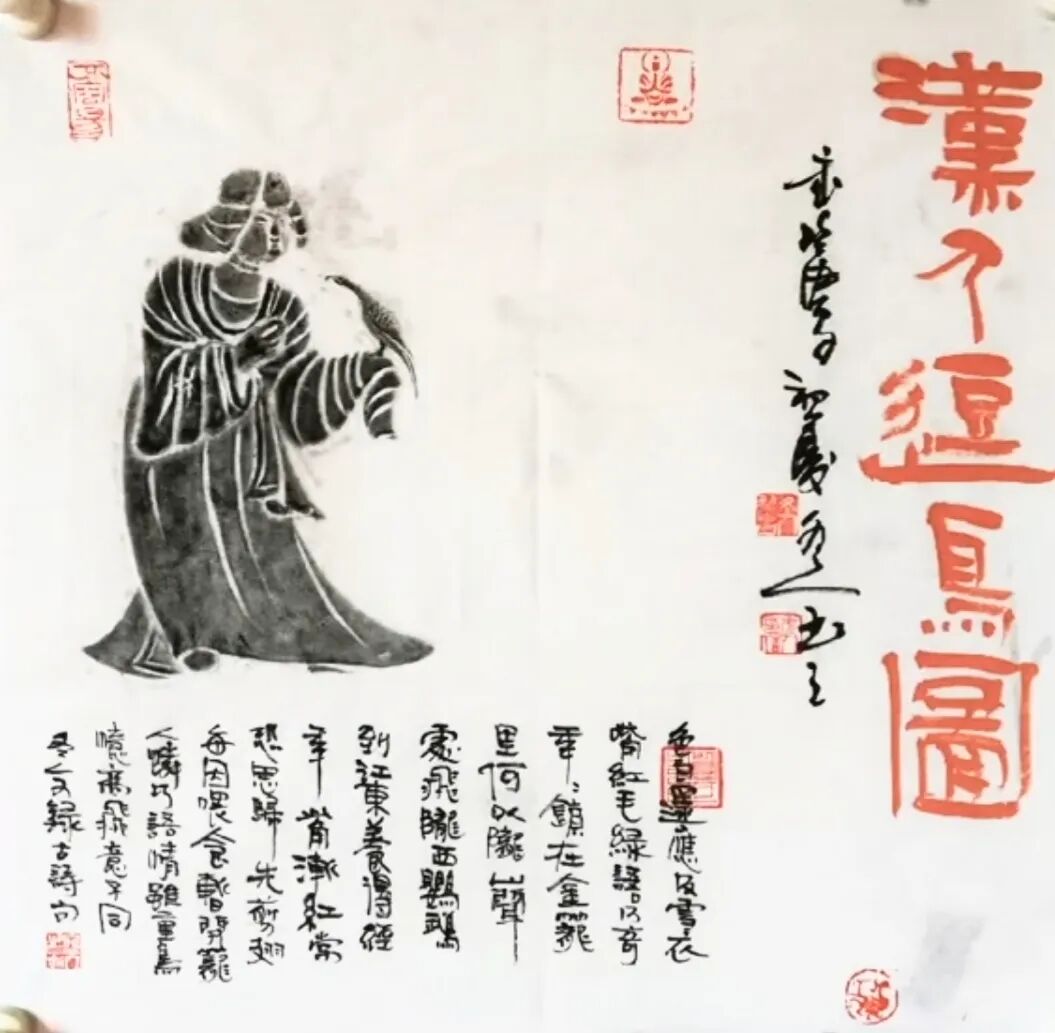 漢人逗鳥圖
初夏
色白還應及雪衣
嘴紅毛綠語仍奇
年〻鎖在金籠
里何以隴山聲
處飛隴西鸚鵡
到江東養得經
年觜漸紅常
恐思歸先剪翅
每因喂食暫開籠
人憐巧語情雖重鳥
憶高飛意不同
冬人錄古詩句